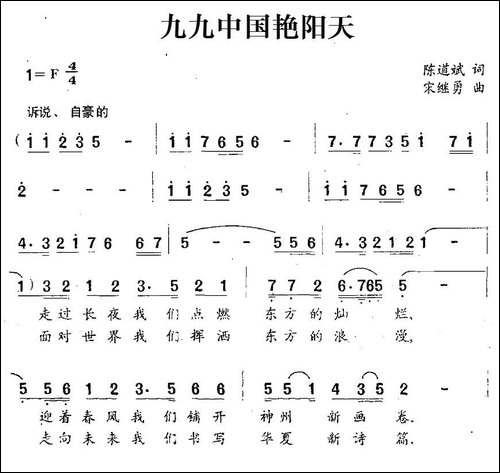 九九中国艳阳天
1=F 4/4
陈道斌 词
宋继勇 曲
诉说、自豪的
( i i 2 3 5 - | i i 7 6 5 6 - | 7. 7 7 3 5 i 7 i |
2 - - - | i i 2 3 5 - | i i 7 6 5 6 - |
4. 3 2 1 7 6 6 7 | 5 - - 5 5 6 | 4. 3 2 1 2 1 1 -
1) 3 2 1 2 3. 5 2 1 | 7 7 2 6. 7 6 5 5 -
走过长夜我们点燃 东方的灿烂,
面对世界我们挥洒 东方的浪漫,
5 5 6 1 2 3. 5 2 1 | 5 5 1 3 5 3 2 2 -
迎着春风我们铺开 神州新画卷。
走向未来我们书写 华夏新诗篇。